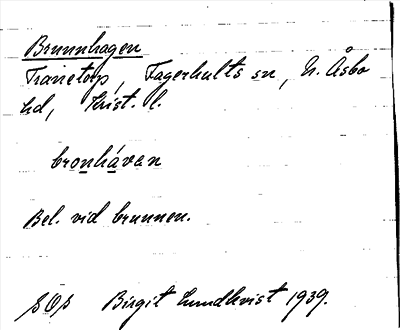 Brunnhagen
Tranetorp, Fagerhults sn, N. Åsbo
hd, Krist. l.
bronháven
Bel. vid brunnen.
Birgit Lundkvist 1939.